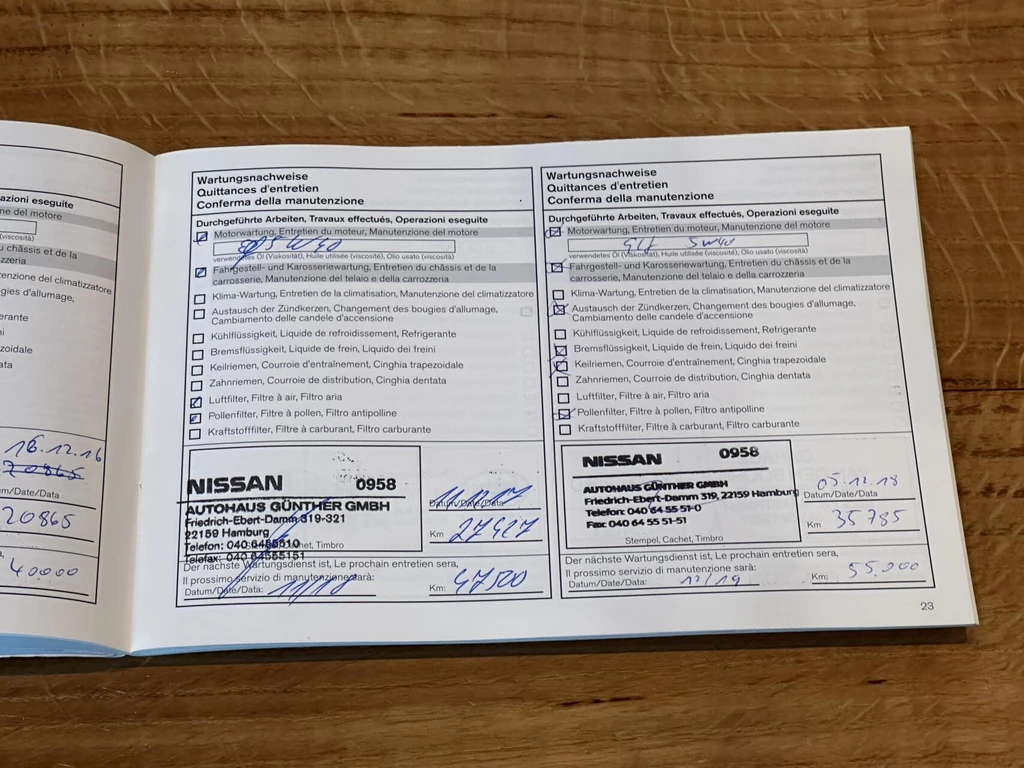 azioni eseguite
ne del motore
(viscosità)
u châssis et de la
zzeria
enzione del climatizzatore
gies d'allumage,
erante
ni
zoidale
ata
16.12.16
20865
um/Date/Data
20865
a,
40.000
Wartungsnachweise
Quittances d'entretien
Conferma della manutenzione
Durchgeführte Arbeiten, Travaux effectués, Operazioni eseguite
Motorwartung, Entretien du moteur, Manutenzione del motore
5W40
verwendetes Öl (Viskosität), Huile utilisée (viscosité), Olio usato (viscosità)
Fahrgestell- und Karosseriewartung, Entretien du châssis et de la
carrosserie, Manutenzione del telaio e della carrozzeria
Klima-Wartung, Entretien de la climatisation, Manutenzione del climatizzatore
Austausch der Zündkerzen, Changement des bougies d'allumage,
Cambiamento delle candele d'accensione
Kühlflüssigkeit, Liquide de refroidissement, Refrigerante
Bremsflüssigkeit, Liquide de frein, Liquido dei freini
Keilriemen, Courroie d'entraînement, Cinghia trapezoidale
Zahnriemen, Courroie de distribution, Cinghia dentata
Luftfilter, Filtre à air, Filtro aria
Pollenfilter, Filtre à pollen, Filtro antipolline
Kraftstofffilter, Filtre à carburant, Filtro carburante
NISSAN 0958
AUTOHAUS GÜNTHER GMBH
Friedrich-Ebert-Damm 319-321
22159 Hamburg
Telefon: 040 6455510
Telefax: 040 64555151
Cachet, Timbro
Datum/Date/Data
Km 27427
Der nächste Wartungsdienst ist, Le prochain entretien sera,
Il prossimo servizio di manutenzione sarà:
Datum/Date/Data: 11/18 Km: 47500
Wartungsnachweise
Quittances d'entretien
Conferma della manutenzione
Durchgeführte Arbeiten, Travaux effectués, Operazioni eseguite
Motorwartung, Entretien du moteur, Manutenzione del motore
5W40
verwendetes Öl (Viskosität), Huile utilisée (viscosité), Olio usato (viscosità)
Fahrgestell- und Karosseriewartung, Entretien du châssis et de la
carrosserie, Manutenzione del telaio e della carrozzeria
Klima-Wartung, Entretien de la climatisation, Manutenzione del climatizzatore
Austausch der Zündkerzen, Changement des bougies d'allumage,
Cambiamento delle candele d'accensione
Kühlflüssigkeit, Liquide de refroidissement, Refrigerante
Bremsflüssigkeit, Liquide de frein, Liquido dei freini
Keilriemen, Courroie d'entraînement, Cinghia trapezoidale
Zahnriemen, Courroie de distribution, Cinghia dentata
Luftfilter, Filtre à air, Filtro aria
Pollenfilter, Filtre à pollen, Filtro antipolline
Kraftstofffilter, Filtre à carburant, Filtro carburante
NISSAN 0958
AUTOHAUS GÜNTHER GMBH
Friedrich-Ebert-Damm 319, 22159 Hamburg
Telefon: 040 64 55 51-0
Fax: 040 64 55 51-51
Stempel, Cachet, Timbro
05.12.18
Datum/Date/Data
Km 35785
Der nächste Wartungsdienst ist, Le prochain entretien sera,
Il prossimo servizio di manutenzione sarà:
Datum/Date/Data: 12/19 Km: 55.000
23